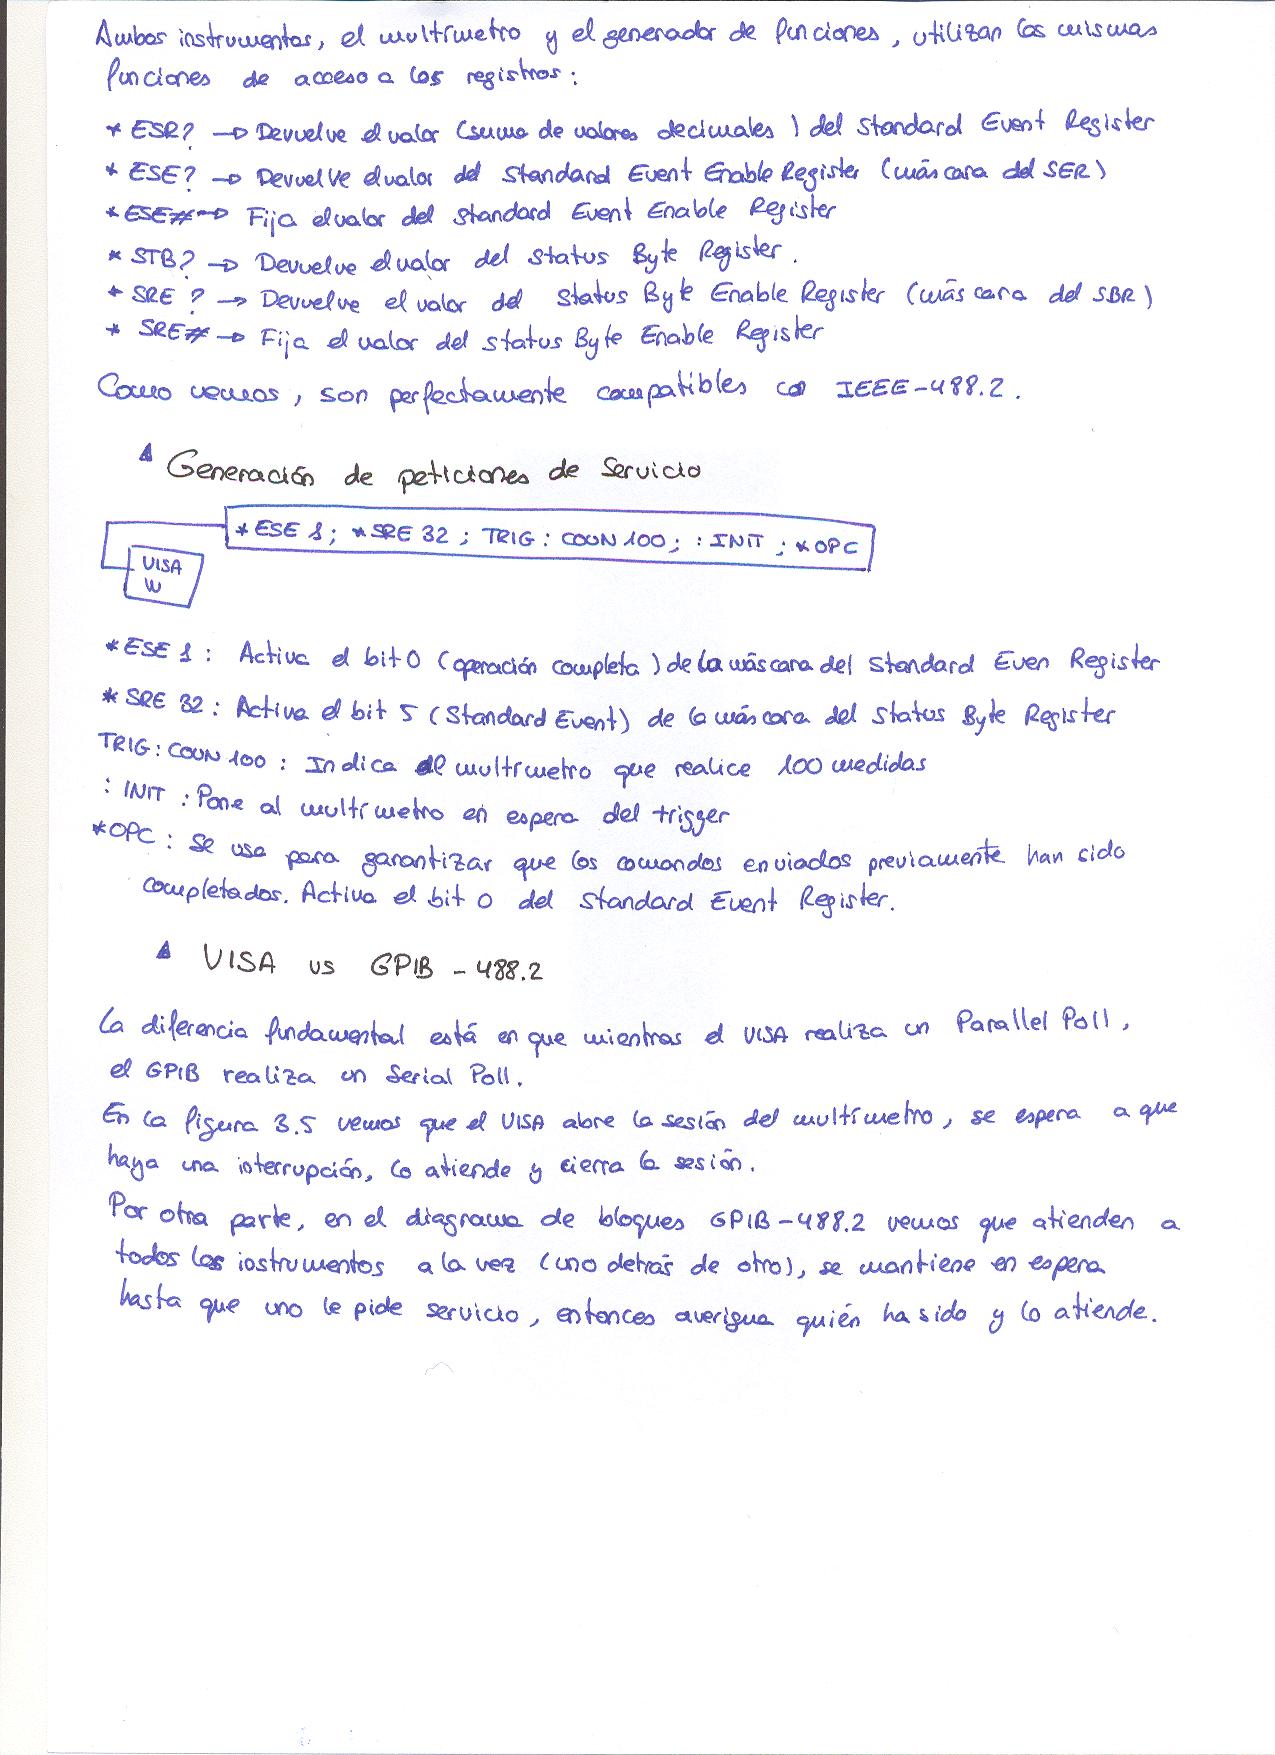 Ambos instrumentos, el multímetro y el generador de funciones, utilizan las mismas
funciones de acceso a los registros:
* ESR? → Devuelve el valor (suma de valores decimales) del Standard Event Register
* ESE? → Devuelve el valor del Standard Event Enable Register (máscara del SER)
* ESE# → Fija el valor del Standard Event Enable Register
* STB? → Devuelve el valor del Status Byte Register.
* SRE ? → Devuelve el valor del Status Byte Enable Register (máscara del SBR)
* SRE# → Fija el valor del Status Byte Enable Register
Como vemos, son perfectamente compatibles con IEEE-488.2.
Generación de peticiones de Servicio
*ESE 1; *SRE 32; TRIG:COUN 100; :INIT; *OPC
VISA
W
*ESE 1: Activa el bit 0 (operación completa) de la máscara del Standard Even Register
* SRE 32: Activa el bit 5 (Standard Event) de la máscara del Status Byte Register
TRIG:COUN 100: Indica al multímetro que realice 100 medidas
: INIT : Pone al multímetro en espera del trigger
*OPC: Se usa para garantizar que los comandos enviados previamente han sido
completados. Activa el bit 0 del Standard Event Register.
VISA vs GPIB - 488.2
La diferencia fundamental está en que mientras el VISA realiza un Parallel Poll,
el GPIB realiza un Serial Poll.
En la figura 3.5 vemos que el VISA abre la sesión del multímetro, se espera a que
haya una interrupción, lo atiende y cierra la sesión.
Por otra parte, en el diagrama de bloques GPIB-488.2 vemos que atienden a
todos los instrumentos a la vez (uno detrás de otro), se mantiene en espera
hasta que uno le pide servicio, entonces averigua quién ha sido y lo atiende.